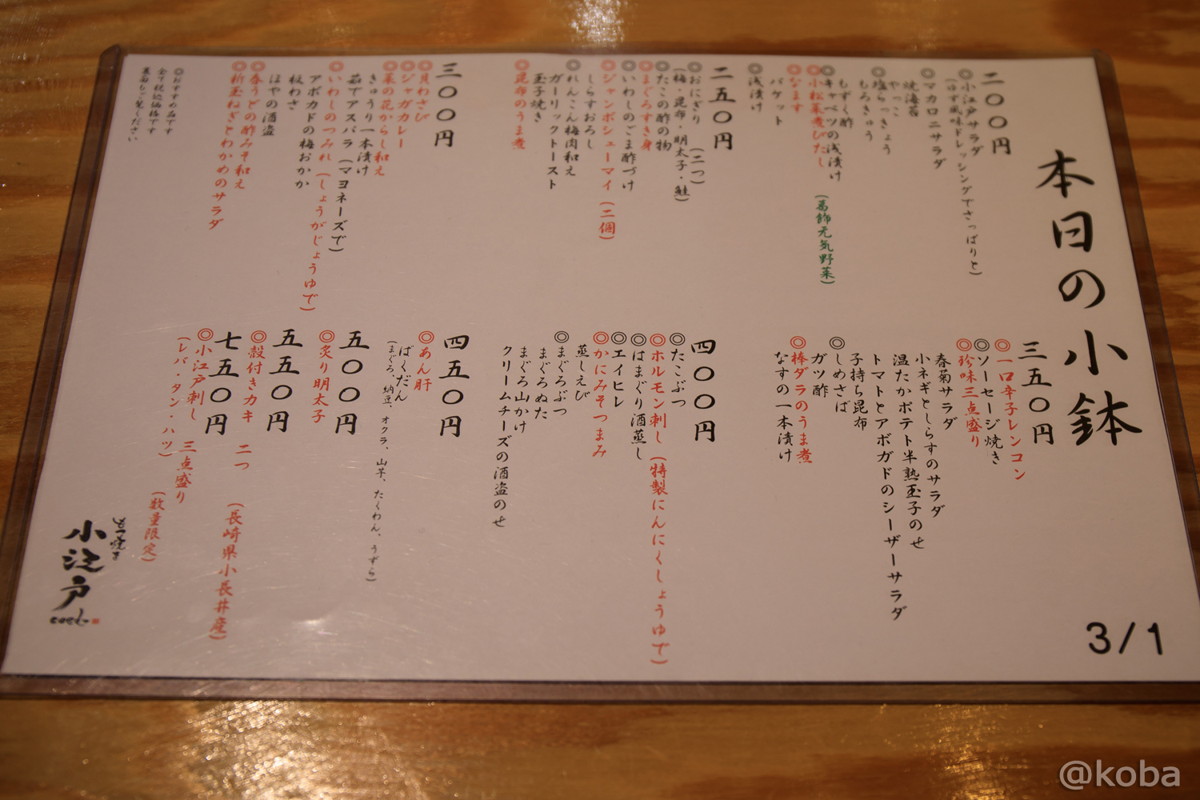 本日の小鉢
二〇〇円
◎小江戸サラダ
(ゆず風味ドレッシングでさっぱりと)
◎マカロニサラダ
焼海苔
やっこ
◎塩らっきょう
もろきゅう
もずく酢
◎キャベツの浅漬け
◎小松菜煮びたし (葛飾元気野菜)
◎なます
バケット
◎浅漬け
二五〇円
◎おにぎり (二つ)
(梅・昆布・明太子・鮭)
◎たこの酢の物
◎まぐろすき身
◎いわしのごま酢づけ
◎ジャンボシューマイ (二個)
しらすおろし
◎れんこん梅肉和え
ガーリックトースト
玉子焼き
◎昆布のうま煮
三〇〇円
◎貝わさび
◎ジャガカレー
◎菜の花からし和え
きゅうり一本漬け
茹でアスパラ (マヨネーズで)
◎いわしのつみれ (しょうがじょうゆで)
アボカドの梅おかか
ほやの酒盗
板わさ
◎春うどの酢みそ和え
◎新玉ねぎとわかめのサラダ
◎おすすめ品です
全て税込価格です
裏面もご覧ください
三五〇円
◎一口辛子レンコン
◎ソーセージ焼き
◎珍味三点盛り
春菊サラダ
小ネギとしらすのサラダ
温たかポテト半熟玉子のせ
トマトとアボガドのシーザーサラダ
子持ち昆布
◎しめさば
ガツ酢
◎棒ダラのうま煮
なすの一本漬け
四〇〇円
◎たこぶつ
◎ホルモン刺し (特製にんにくしょうゆで)
◎はまぐり酒蒸し
◎エイヒレ
◎かにみそつまみ
蒸しえび
◎まぐろぶつ
まぐろぬた
まぐろ山かけ
クリームチーズの酒盗のせ
四五〇円
◎あん肝
ばくだん
(まぐろ、納豆、オクラ、山芋、たくわん、うずら)
五〇〇円
◎炙り明太子
五五〇円
◎殻付きカキ 二つ (長崎県小長井産)
七五〇円
◎小江戸刺し 三点盛り (数量限定)
(レバ・タン・ハツ)
小江戸
3/1
@koba